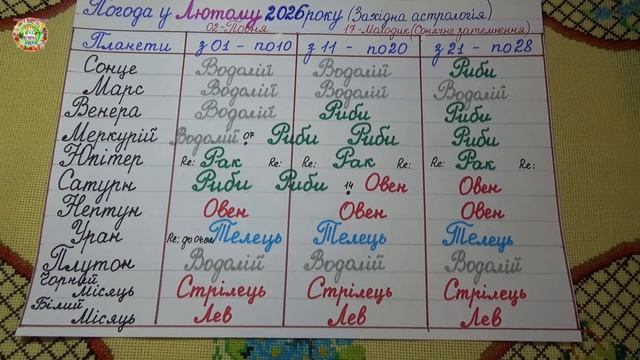 Погода у Лютому 2026 року (Західна астрологія)
02-Повня 17-Молодик (Сонячне затемнення)
Планети з 01 - по10 з 11 - по20 з 21 - по 28
Сонце Водолій Водолій Риби
Марс Водолій Водолій Водолій
Венера Водолій Риби Риби
Меркурій Водолій 07 Риби Риби Риби
Юпітер Re: Рак Re: Re: Рак Re: Re: Рак Re:
Сатурн Риби Риби 14 Овен Овен
Нептун Овен Овен Овен
Уран Re: до 04ого Телець Телець Телець
Плутон Водолій Водолій Водолій
Чорний Місяць Стрілець Стрілець Стрілець
Білий Місяць Лев Лев Лев